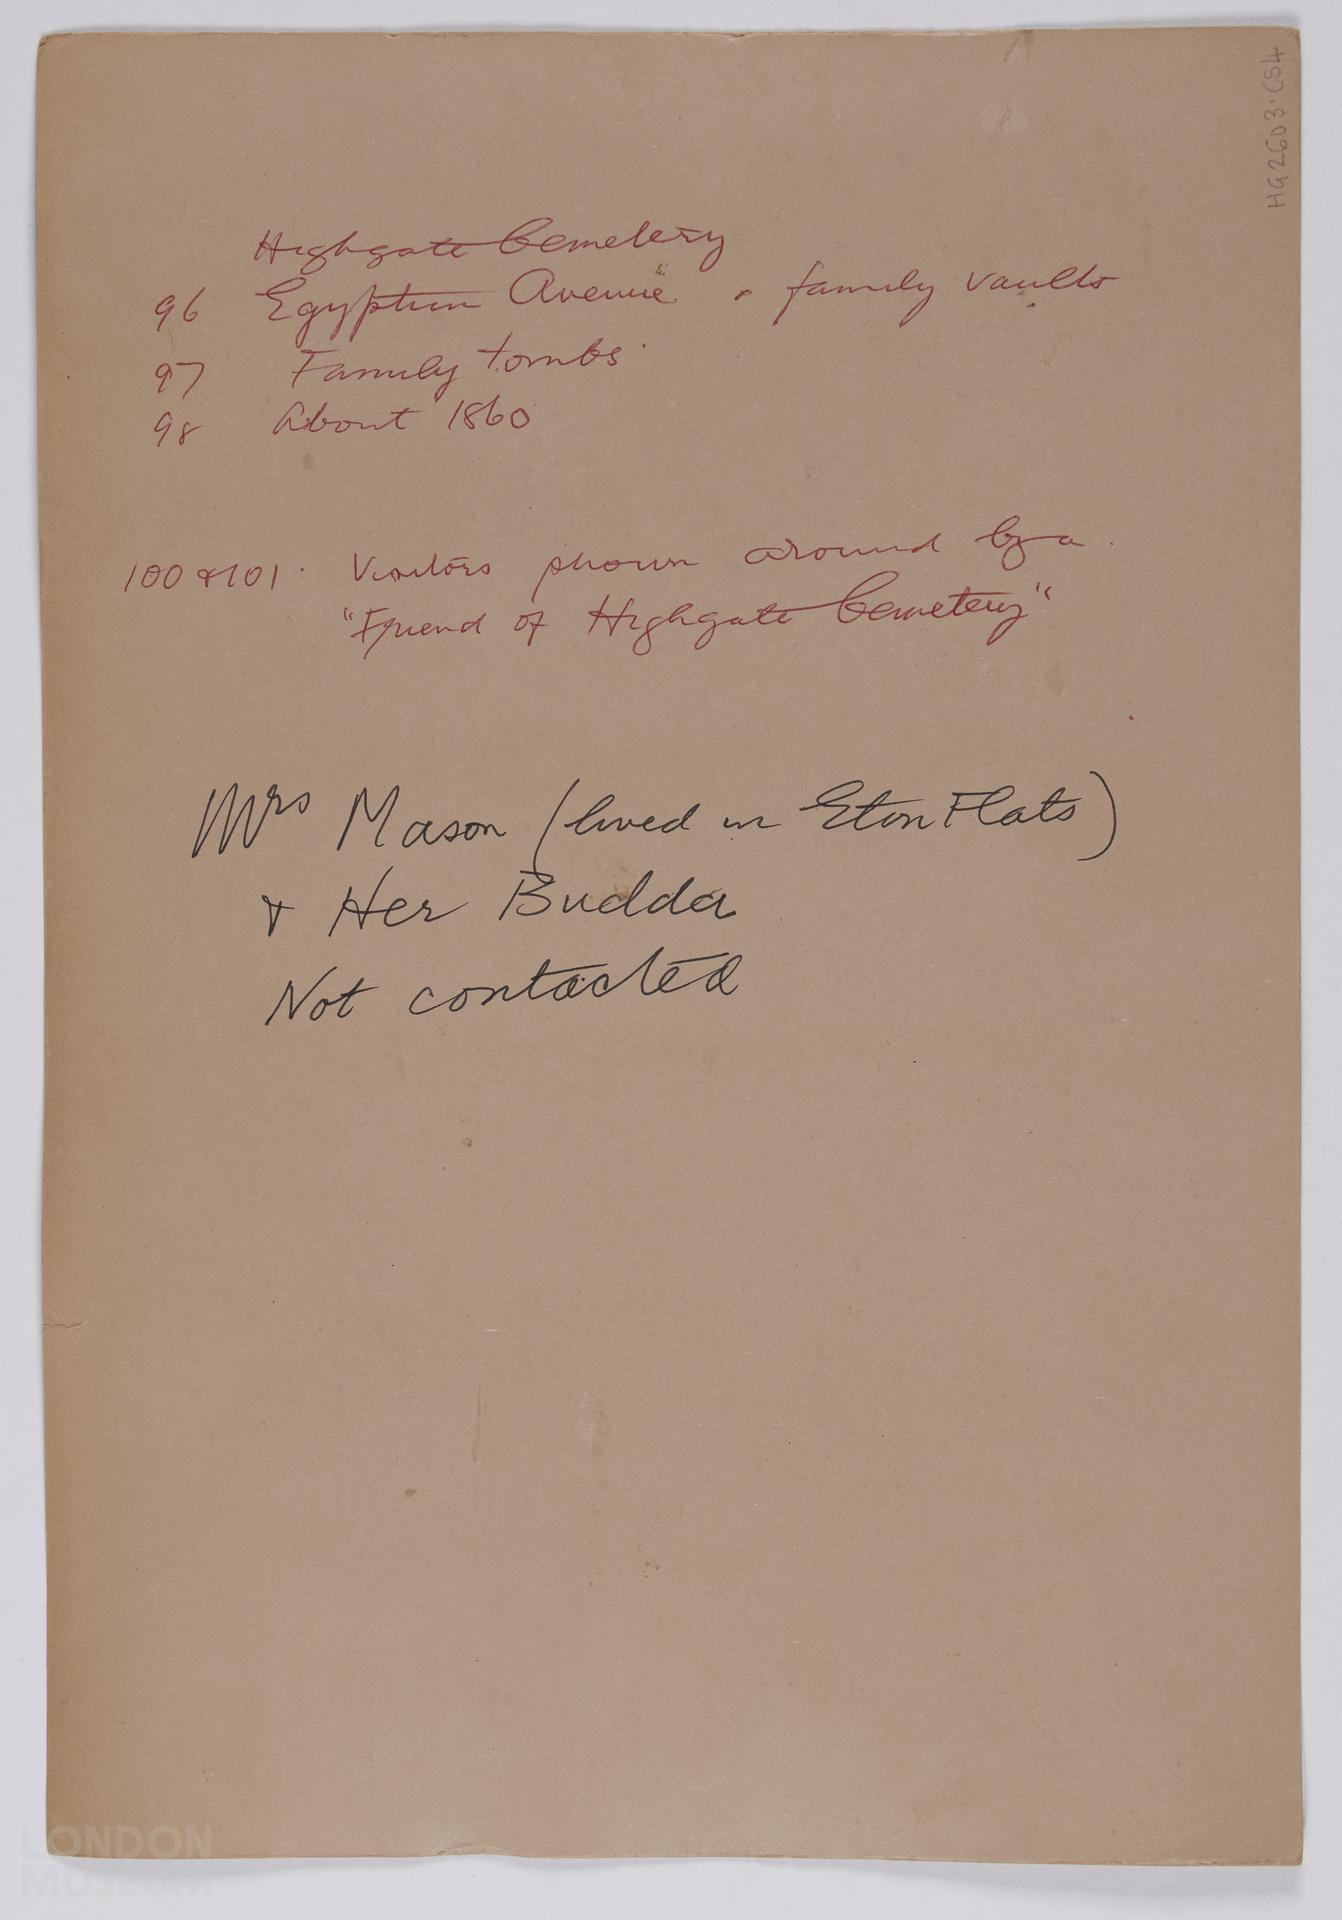 HG2603.CS4
Highgate Cemetery
96 Egyptian Avenue . family vaults
97 Family tombs
98 About 1860
100 & 101. Visitors shown around by a
"Friend of Highgate Cemetery"
Mrs Mason (lived in Eton Flats)
& Her Budda
Not contacted
LONDON
MUSEUM